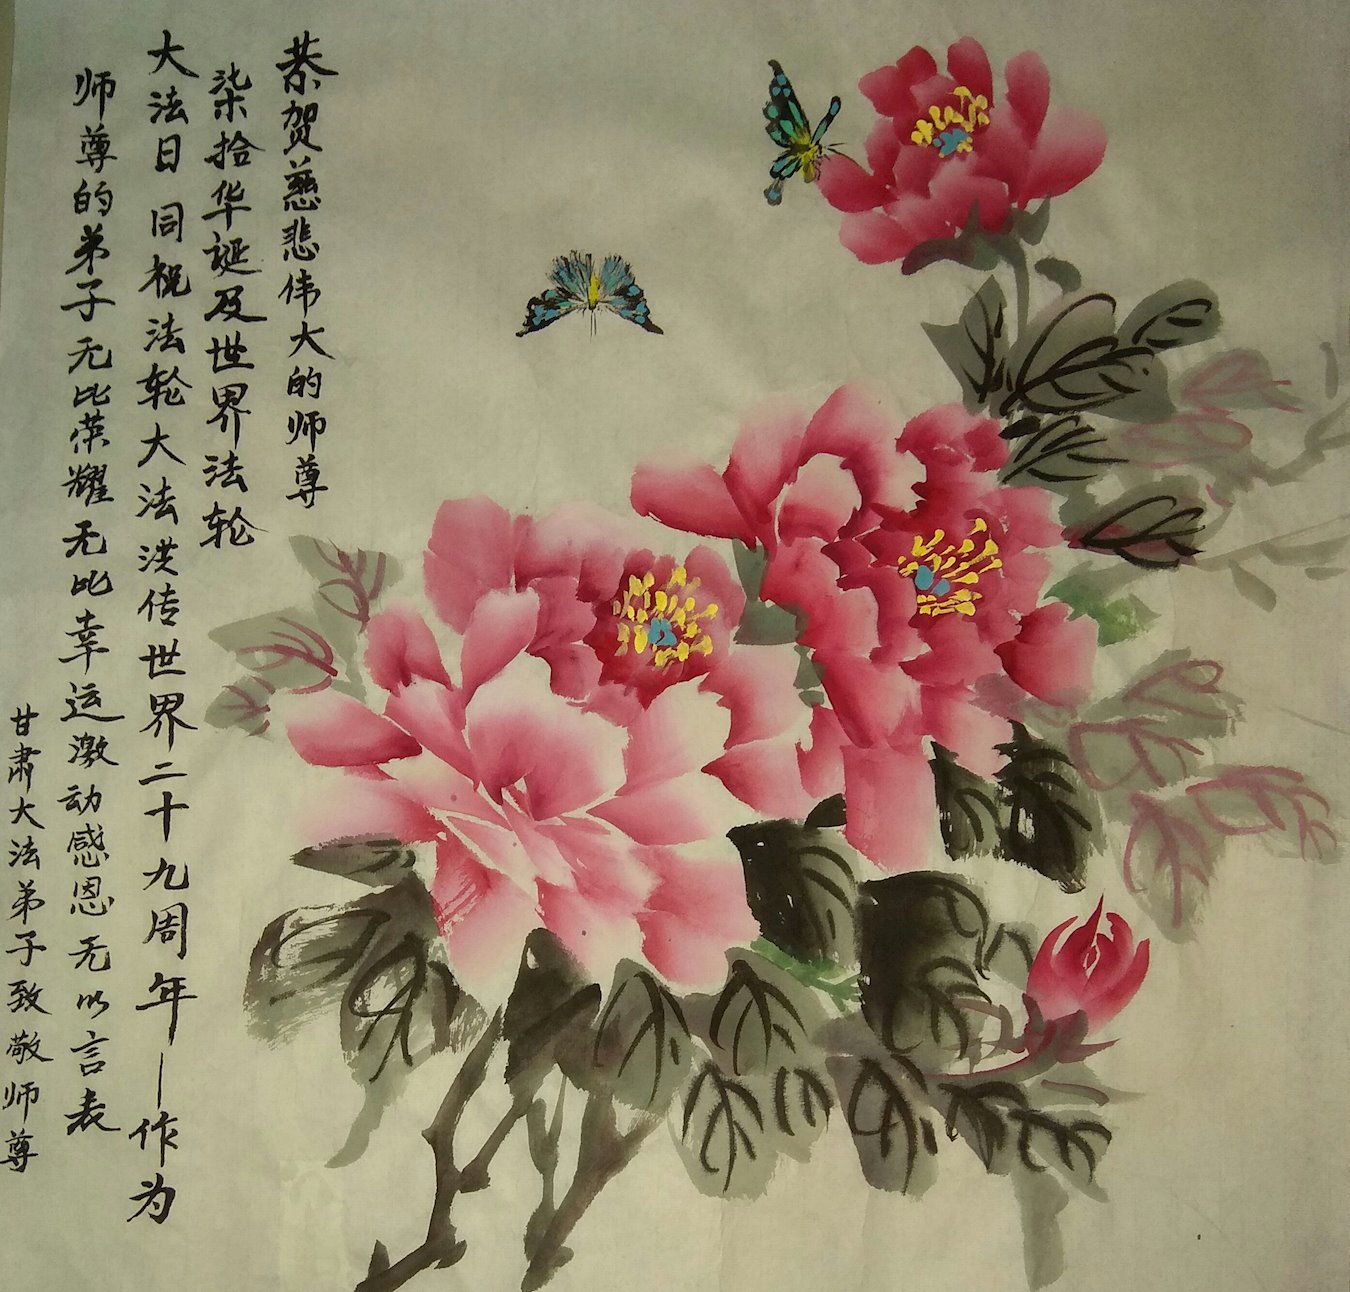 恭贺慈悲伟大的师尊
柒拾华诞及世界法轮
大法日 同祝法轮大法洪传世界二十九周年—作为
师尊的弟子无比荣耀无比幸运激动感恩无以言表
甘肃大法弟子致敬师尊